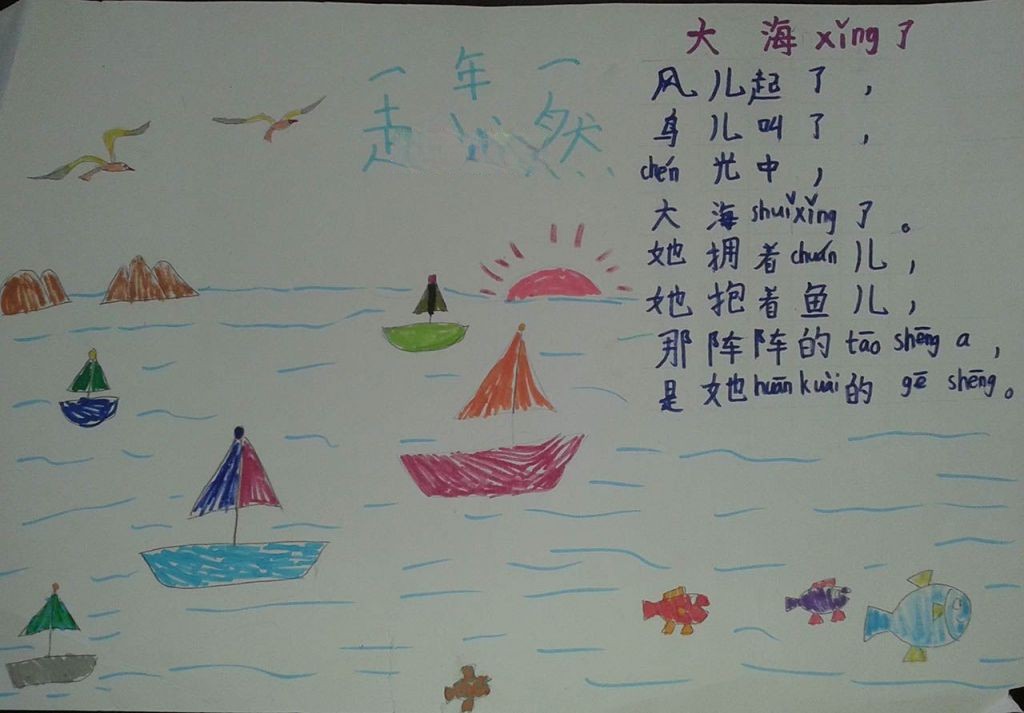 一年一
赵 然
大海xǐng了
风儿起了，
鸟儿叫了，
chén光中，
大海shuǐxǐng了。
她拥着chuán儿，
她抱着鱼儿，
那阵阵的tāo shēng a，
是她huān kuài的gē shēng。